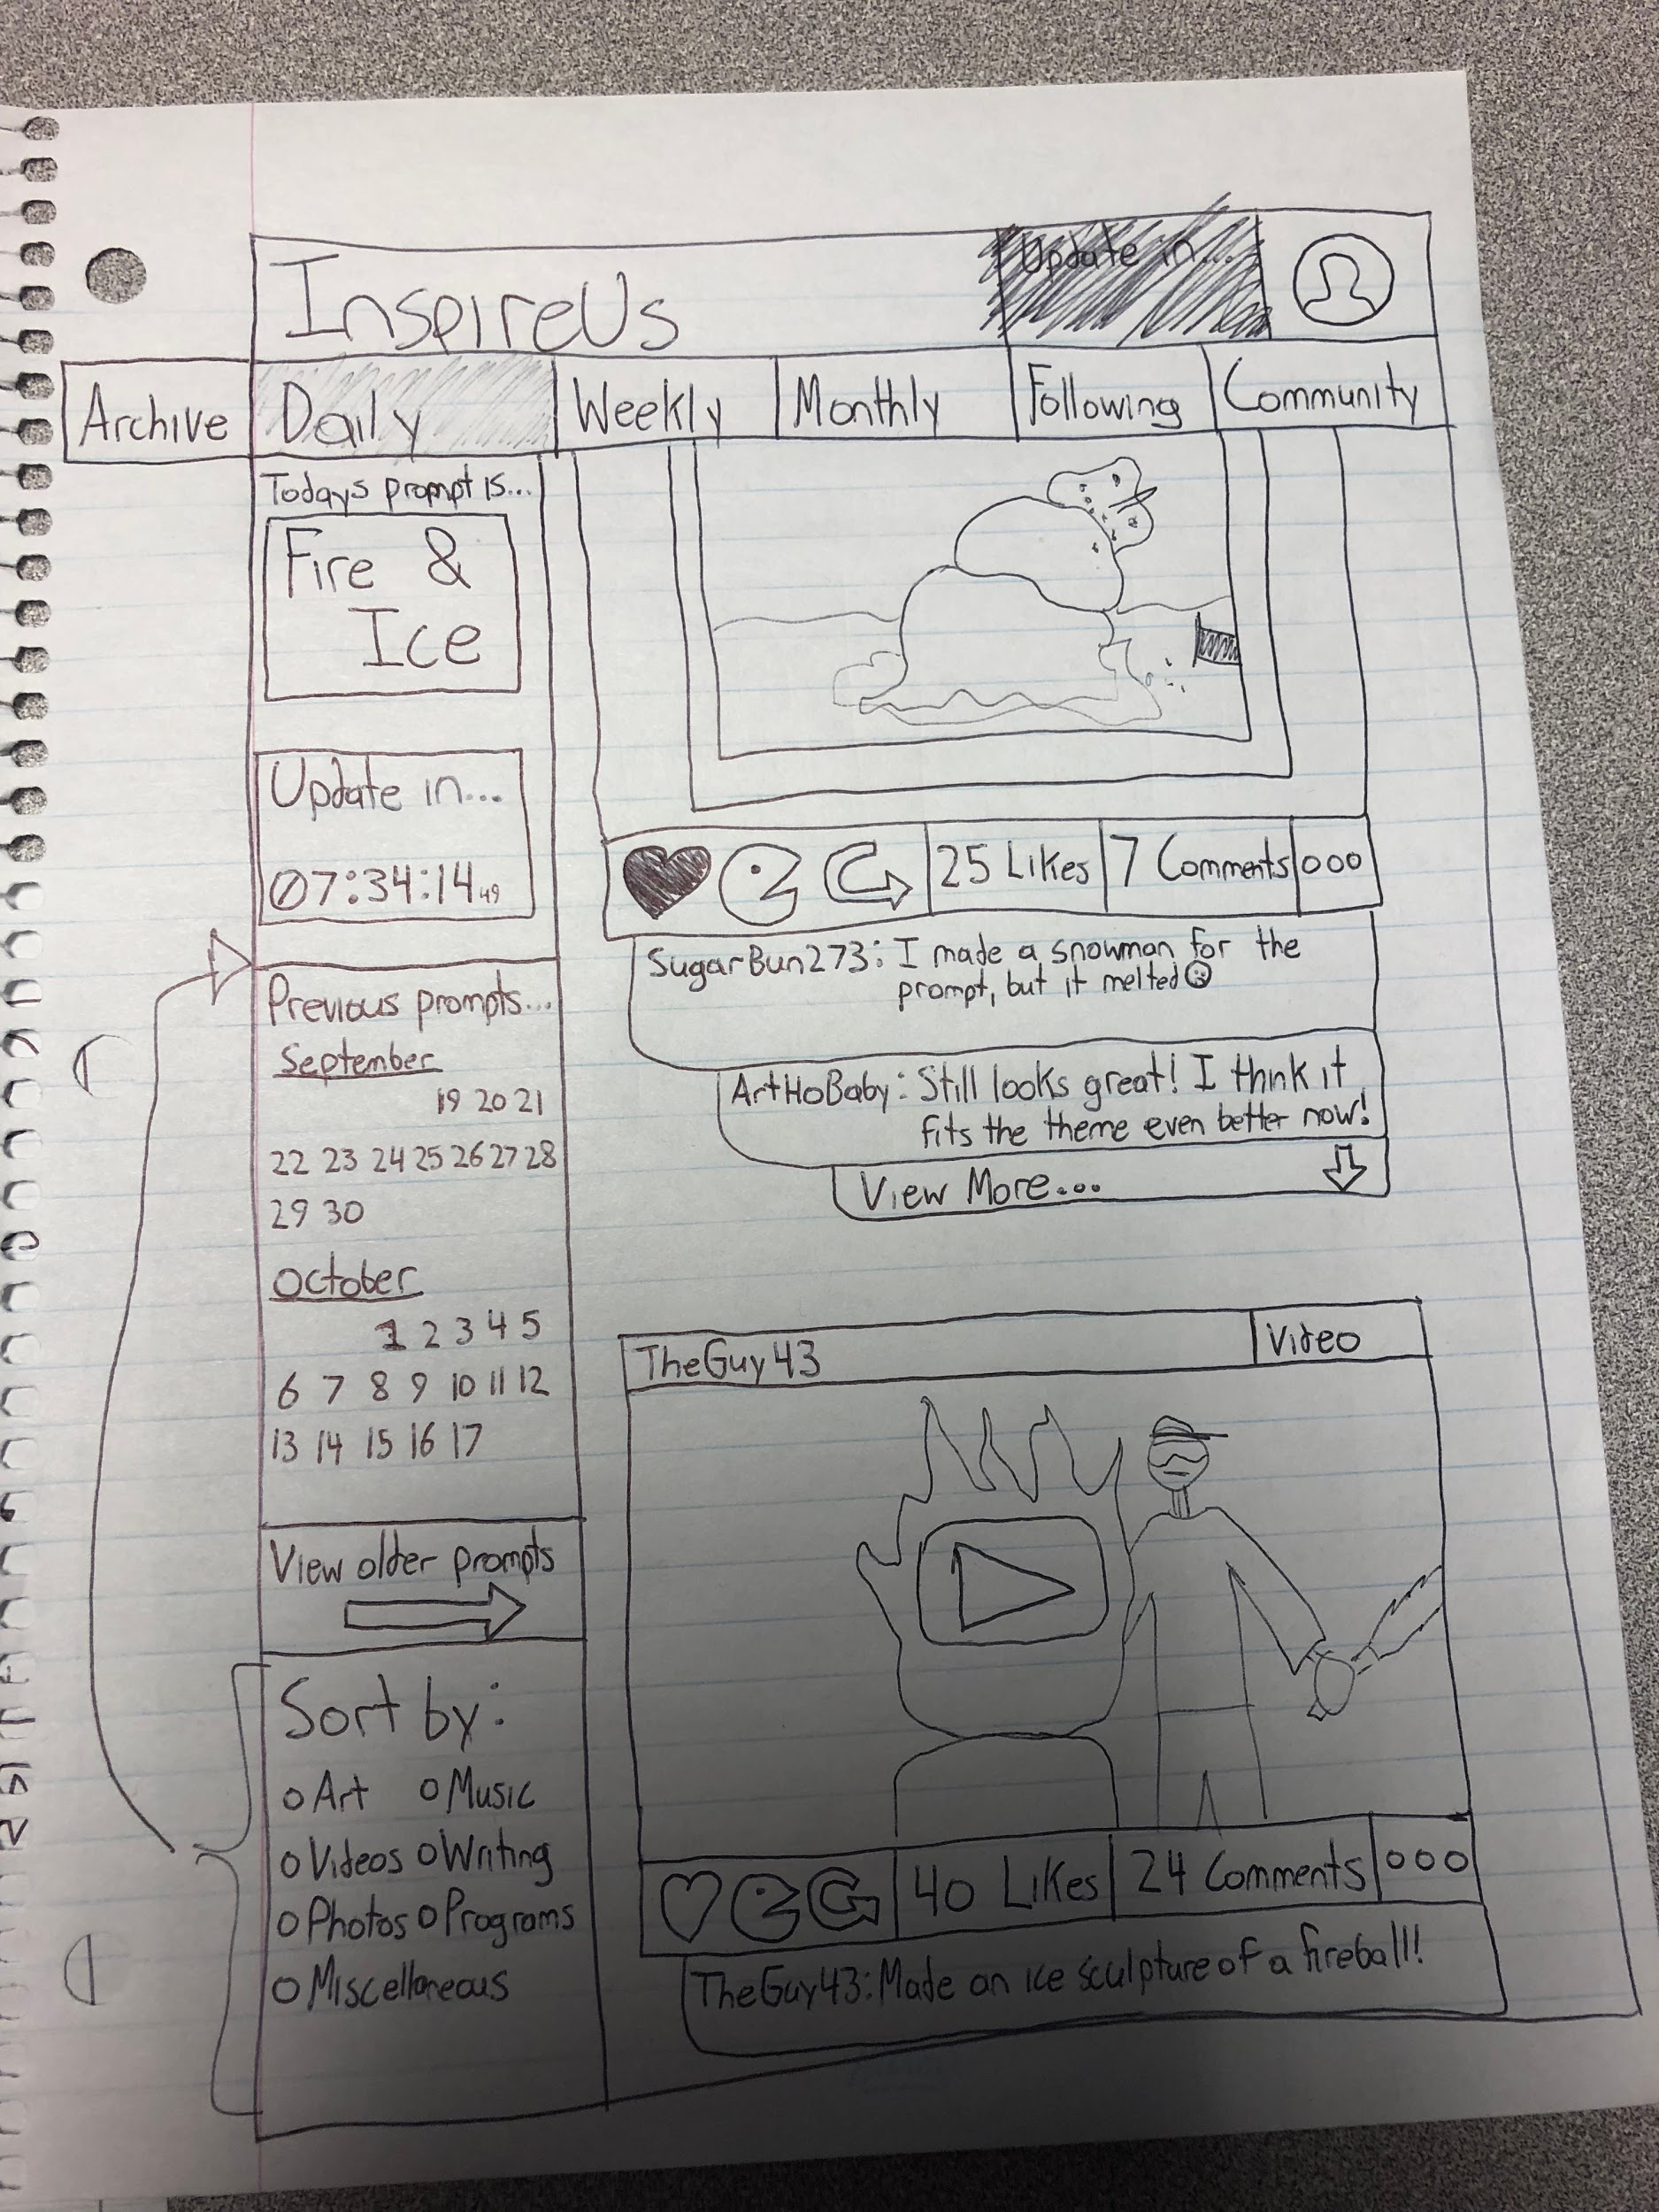 InspireUs
Update in...
Archive Daily Weekly Monthly Following Community
Todays prompt is...
Fire &
Ice
Update in...
07:34:14 49
Previous prompts...
September
19 20 21
22 23 24 25 26 27 28
29 30
October
1 2 3 4 5
6 7 8 9 10 11 12
13 14 15 16 17
View older prompts
Sort by:
Art Music
Videos Writing
Photos Programs
Miscellaneous
25 Likes 7 Comments
SugarBun273: I made a snowman for the
prompt, but it melted
ArtHoBaby: Still looks great! I thnk it
fits the theme even better now!
View More...
TheGuy43 Video
40 Likes 24 Comments
TheGuy43: Made an ice sculpture of a fireball!!